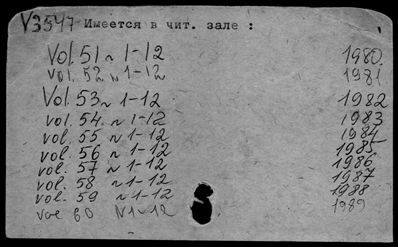 У3547 Имеется в чит. зале :
Vol. 51 N 1-12 1980.
Vol. 52 N 1-12 1981
Vol. 53 N 1-12 1982
vol. 54. N 1-12 1983
vol. 55 N 1-12 1984
vol. 56 N 1-12 1985.
vol. 57 N 1-12 1986
vol. 58 N 1-12 1987
vol. 59 N 1-12 1988
vol 60 N 1-12 1989